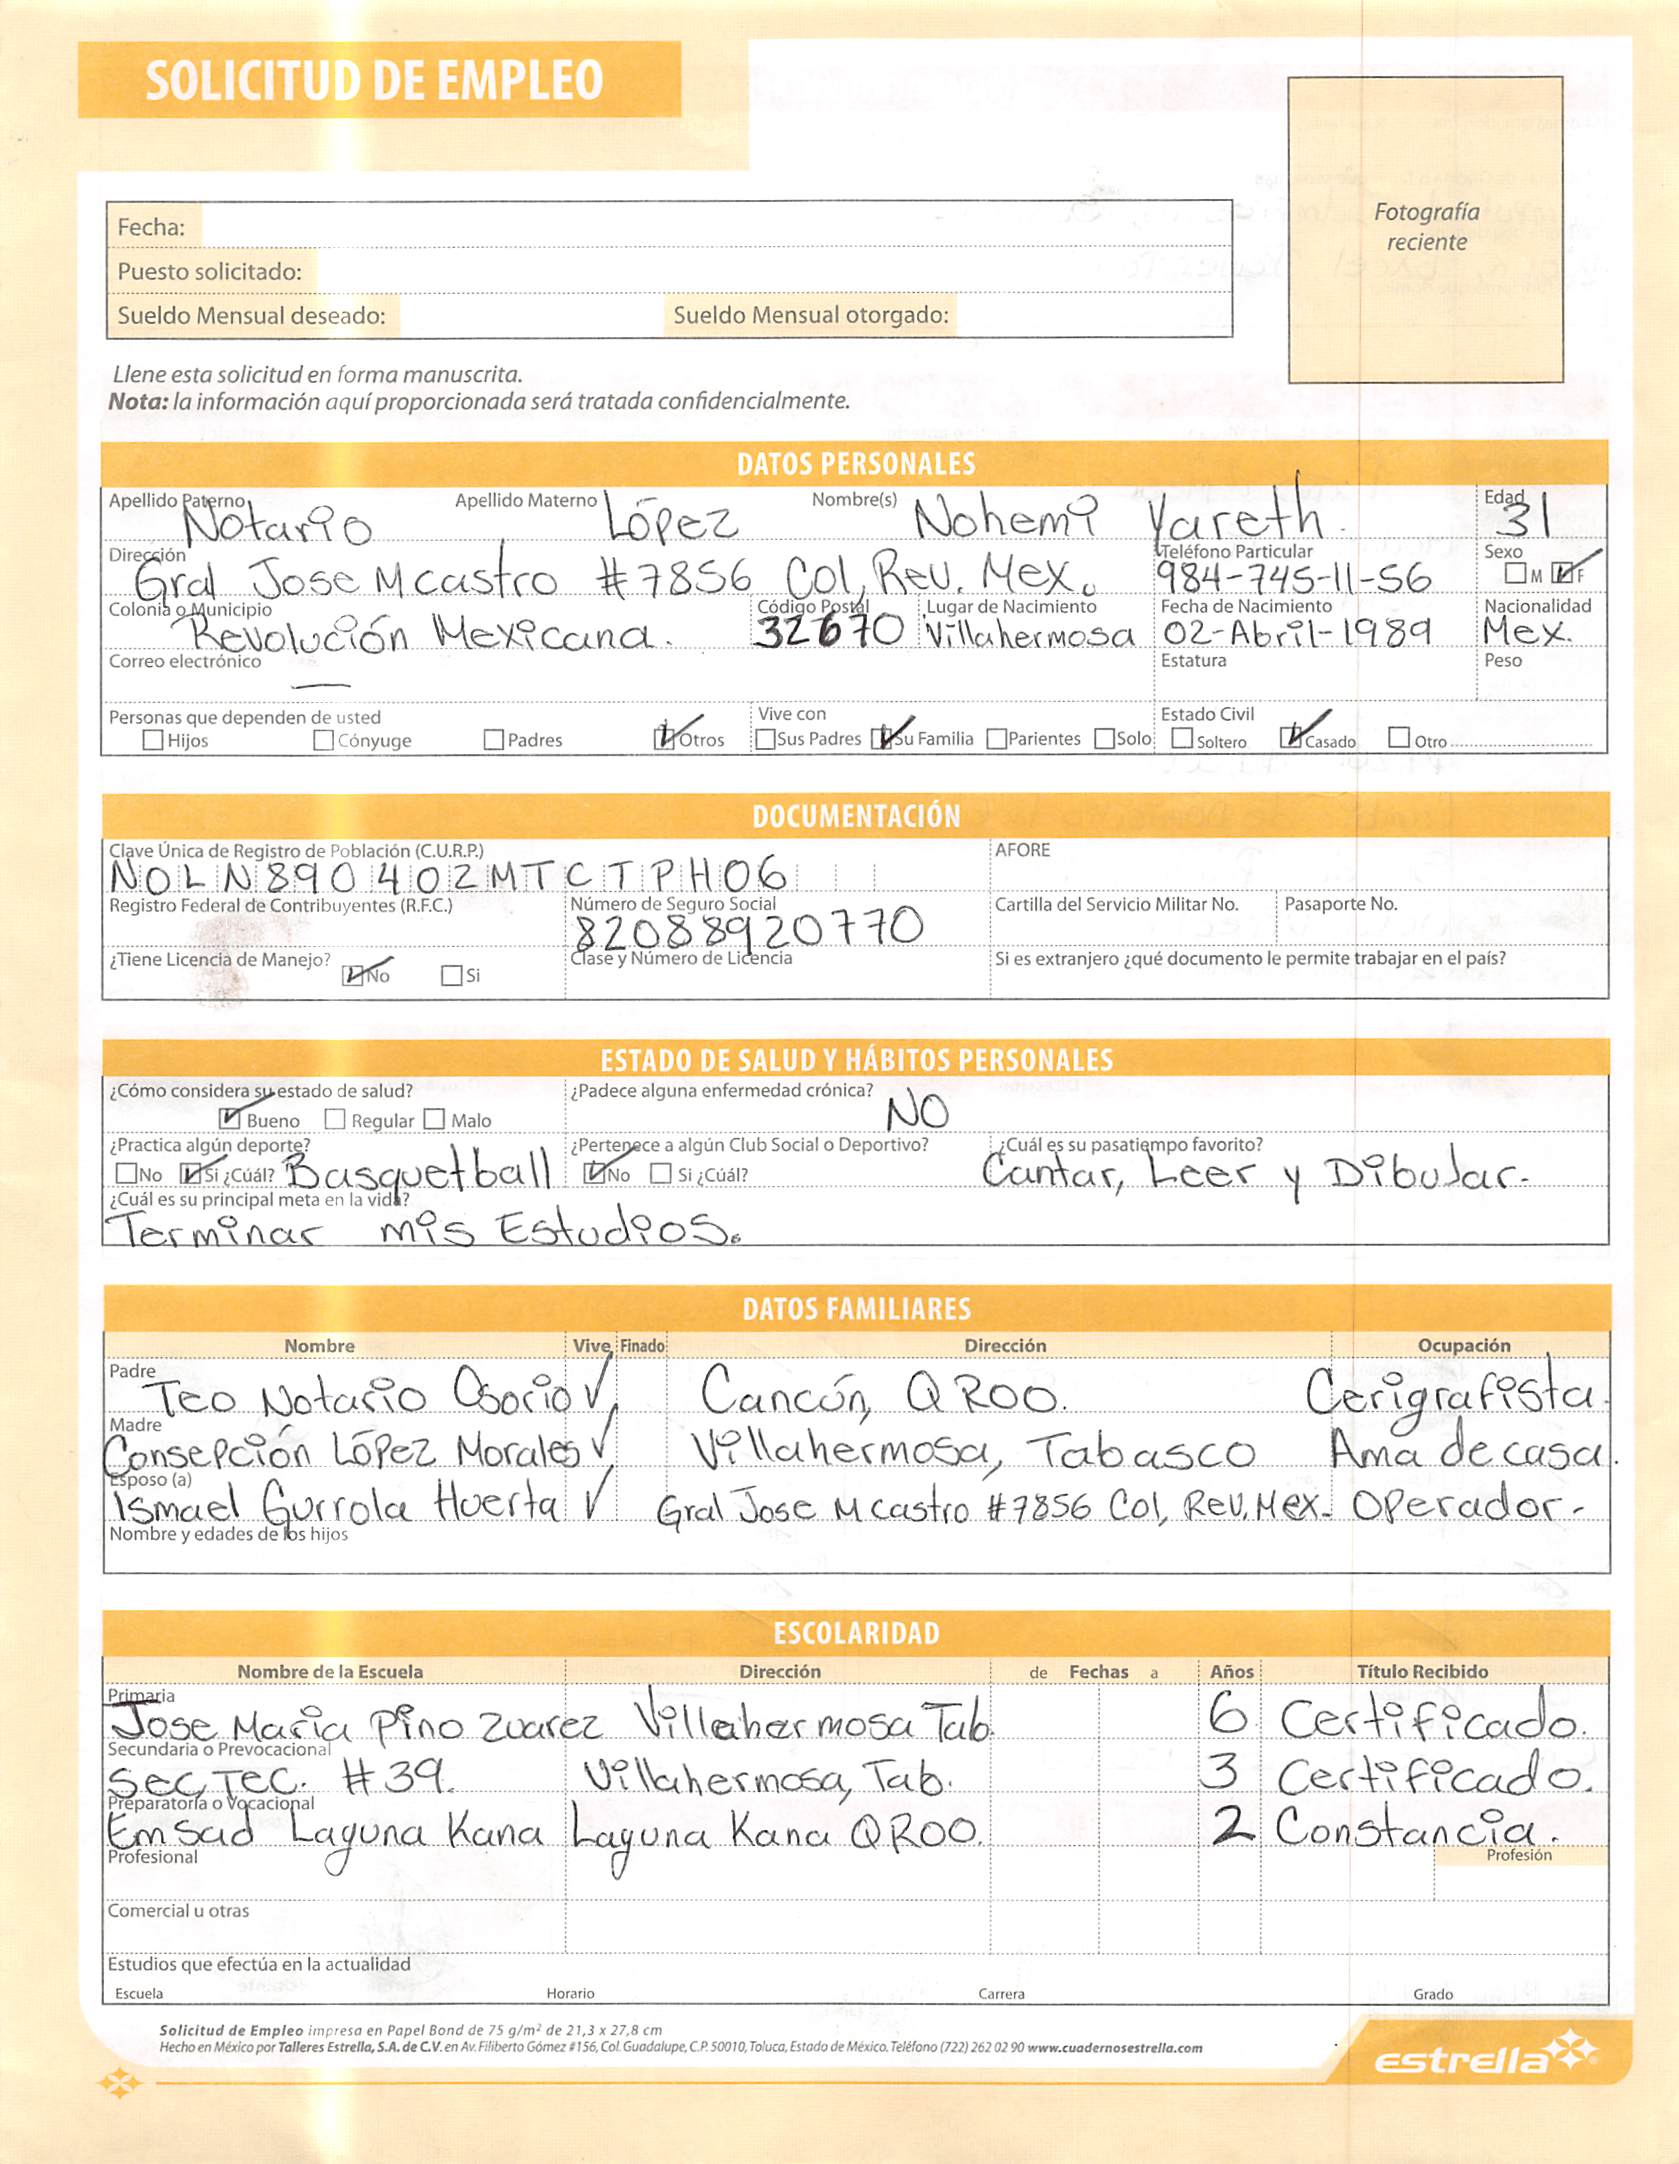 SOLICITUD DE EMPLEO
Fotografía
reciente
Fecha:
Puesto solicitado:
Sueldo Mensual deseado: Sueldo Mensual otorgado:
Llene esta solicitud en forma manuscrita.
Nota: la información aquí proporcionada será tratada confidencialmente.
DATOS PERSONALES
Apellido Paterno Apellido Materno Nombre(s) Edad
Notario López Nohemi Yareth. 31
Dirección Teléfono Particular Sexo
Gral Jose M castro #7856 Col, Rev. Mex. 984-745-11-56 M F
Colonia o Municipio Código Postal Lugar de Nacimiento Fecha de Nacimiento Nacionalidad
Revolución Mexicana. 32670 Villahermosa 02-Abril-1989 Mex.
Correo electrónico Estatura Peso
—
Personas que dependen de usted Vive con Estado Civil
Hijos Cónyuge Padres Otros Sus Padres Su Familia Parientes Solo Soltero Casado Otro
DOCUMENTACIÓN
Clave Única de Registro de Población (C.U.R.P.) AFORE
NOLN890402MTCTPH06
Registro Federal de Contribuyentes (R.F.C.) Número de Seguro Social Cartilla del Servicio Militar No. Pasaporte No.
82088920770
¿Tiene Licencia de Manejo? Clase y Número de Licencia Si es extranjero ¿qué documento le permite trabajar en el país?
No Si
ESTADO DE SALUD Y HÁBITOS PERSONALES
¿Cómo considera su estado de salud? ¿Padece alguna enfermedad crónica?
Bueno Regular Malo NO
¿Practica algún deporte? ¿Pertenece a algún Club Social o Deportivo? ¿Cuál es su pasatiempo favorito?
No Si ¿Cúál? Basquetball No Si ¿Cúál? Cantar, Leer y Dibujar.
¿Cuál es su principal meta en la vida?
Terminar mis Estudios.
DATOS FAMILIARES
Nombre Vive Finado Dirección Ocupación
Padre
Teo Notario Osorio ✓ Cancún, QROO. Cerigrafista.
Madre
Consepción López Morales ✓ Villahermosa, Tabasco Ama de casa.
Esposo (a)
Ismael Gurrola Huerta ✓ Gral Jose M castro #7856 Col, Rev. Mex. Operador.
Nombre y edades de los hijos
ESCOLARIDAD
Nombre de la Escuela Dirección de Fechas a Años Título Recibido
Primaria
Jose Maria Pino Zuarez Villahermosa Tab. 6 Certificado.
Secundaria o Prevocacional
Sec, Tec. #39. Villahermosa, Tab. 3 Certificado.
Preparatoria o Vocacional
Emsad Laguna Kana Laguna Kana QROO. 2 Constancia.
Profesional Profesión
Comercial u otras
Estudios que efectúa en la actualidad
Escuela Horario Carrera Grado
Solicitud de Empleo impresa en Papel Bond de 75 g/m² de 21,3 x 27,8 cm
Hecho en México por Talleres Estrella, S.A. de C.V. en Av. Filiberto Gómez #156, Col. Guadalupe, C.P. 50010, Toluca, Estado de México. Teléfono (722) 262 02 90 www.cuadernosestrella.com
estrella